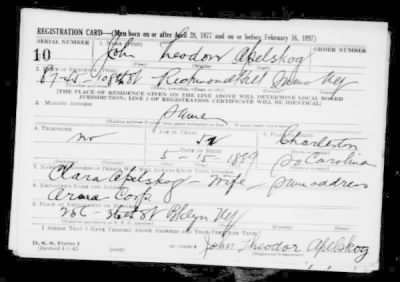 REGISTRATION CARD—(Men born on or after April 28, 1877 and on or before February 16, 1897)
SERIAL NUMBER 1. NAME (Print) ORDER NUMBER
10 John Theodor Apelskog
2. PLACE OF RESIDENCE (Print)
87-45-108th St Richmond Hill Queens Ny
[THE PLACE OF RESIDENCE GIVEN ON THE LINE ABOVE WILL DETERMINE LOCAL BOARD
JURISDICTION; LINE 2 OF REGISTRATION CERTIFICATE WILL BE IDENTICAL]
3. MAILING ADDRESS
Same
4. TELEPHONE 5. AGE IN YEARS 6. PLACE OF BIRTH
no 52 Charleston
5-15-1889 So Carolina
Clara Apelskog - Wife - Same address
8. EMPLOYER'S NAME AND ADDRESS
Arma Corp.
9. PLACE OF EMPLOYMENT OR BUSINESS
36th St Bklyn Ny
I AFFIRM THAT I HAVE VERIFIED ABOVE ANSWERS AND THAT THEY ARE TRUE.
D. S. S. Form 1 John Theodor Apelskog